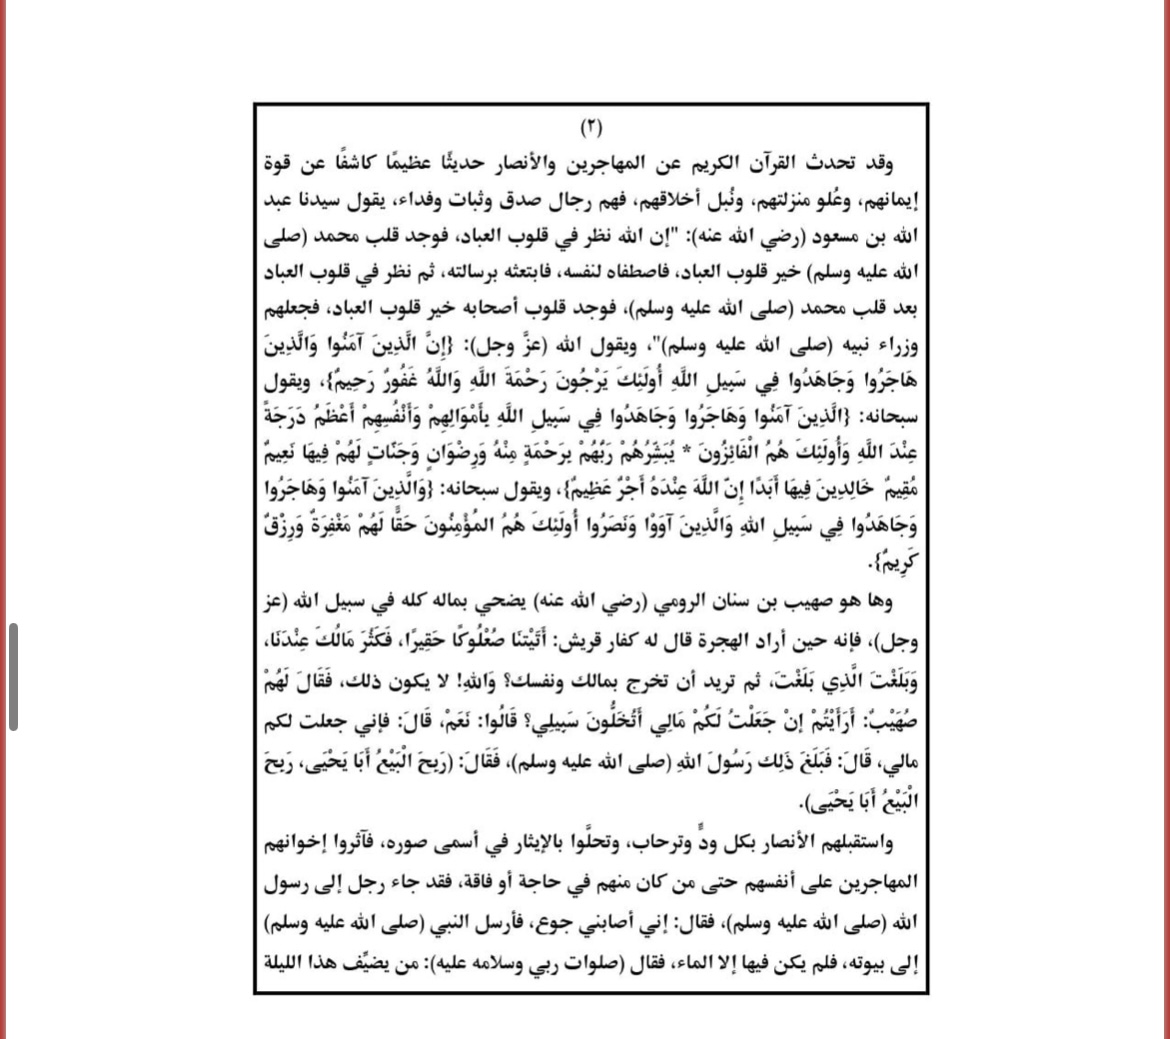 (٢)
وقد تحدث القرآن الكريم عن المهاجرين والأنصار حديثًا عظيمًا كاشفًا عن قوة
إيمانهم، وعُلو منزلتهم، ونُبل أخلاقهم، فهم رجال صدق وثبات وفداء، يقول سيدنا عبد
الله بن مسعود (رضي الله عنه): "إن الله نظر في قلوب العباد، فوجد قلب محمد (صلى
الله عليه وسلم) خير قلوب العباد، فاصطفاه لنفسه، فابتعثه برسالته، ثم نظر في قلوب العباد
بعد قلب محمد (صلى الله عليه وسلم)، فوجد قلوب أصحابه خير قلوب العباد، فجعلهم
وزراء نبيه (صلى الله عليه وسلم)"، ويقول الله (عزَّ وجل): {إِنَّ الَّذِينَ آمَنُوا وَالَّذِينَ
هَاجَرُوا وَجَاهَدُوا فِي سَبِيلِ اللَّهِ أُولَئِكَ يَرْجُونَ رَحْمَةَ اللَّهِ وَاللَّهُ غَفُورٌ رَحِيمٌ}، ويقول
سبحانه: {الَّذِينَ آمَنُوا وَهَاجَرُوا وَجَاهَدُوا فِي سَبِيلِ اللَّهِ بِأَمْوَالِهِمْ وَأَنْفُسِهِمْ أَعْظَمُ دَرَجَةً
عِنْدَ اللَّهِ وَأُولَئِكَ هُمُ الْفَائِزُونَ * يُبَشِّرُهُمْ رَبُّهُمْ بِرَحْمَةٍ مِنْهُ وَرِضْوَانٍ وَجَنّاتٍ لَهُمْ فِيهَا نَعِيمٌ
مُقِيمٌ خَالِدِينَ فِيهَا أَبَدًا إِنّ اللَّهَ عِنْدَهُ أَجْرٌ عَظِيمٌ}، ويقول سبحانه: {وَالَّذِينَ آمَنُوا وَهَاجَرُوا
وَجَاهَدُوا فِي سَبِيلِ اللهِ وَالَّذِينَ آوَوْا وَنَصَرُوا أُولَئِكَ هُمُ المُؤْمِنُونَ حَقًّا لَهُمْ مَغْفِرَةٌ وَرِزْقٌ
كَرِيمٌ}.
وها هو صهيب بن سنان الرومي (رضي الله عنه) يضحي بماله كله في سبيل الله (عز
وجل)، فإنه حين أراد الهجرة قال له كفار قريش: أَتَيْتنَا صُعْلُوكًا حَقِيرًا، فَكَثُرَ مَالُكَ عِنْدَنَا،
وَبَلَغْتَ الَّذِي بَلَغْتَ، ثم تريد أن تخرج بمالك ونفسك؟ وَاللهِ! لا يكون ذلك، فَقَالَ لَهُمْ
صُهَيْبٌ: أَرَأَيْتُمْ إنْ جَعَلْتُ لَكُمْ مَالِي أَتُخَلُّونَ سَبِيلِي؟ قَالُوا: نَعَمْ، قَالَ: فإني جعلت لكم
مالي، قَالَ: فَبَلَغَ ذَلِك رَسُولَ اللهِ (صلى الله عليه وسلم)، فَقَالَ: (رَبِحَ الْبَيْعُ أَبَا يَحْيَى، رَبِحَ
الْبَيْعُ أَبَا يَحْيَى).
واستقبلهم الأنصار بكل ودٍّ وترحاب، وتحلَّوا بالإيثار في أسمى صوره، فآثروا إخوانهم
المهاجرين على أنفسهم حتى من كان منهم في حاجة أو فاقة، فقد جاء رجل إلى رسول
الله (صلى الله عليه وسلم)، فقال: إني أصابني جوع، فأرسل النبي (صلى الله عليه وسلم)
إلى بيوته، فلم يكن فيها إلا الماء، فقال (صلوات ربي وسلامه عليه): من يضيِّف هذا الليلة